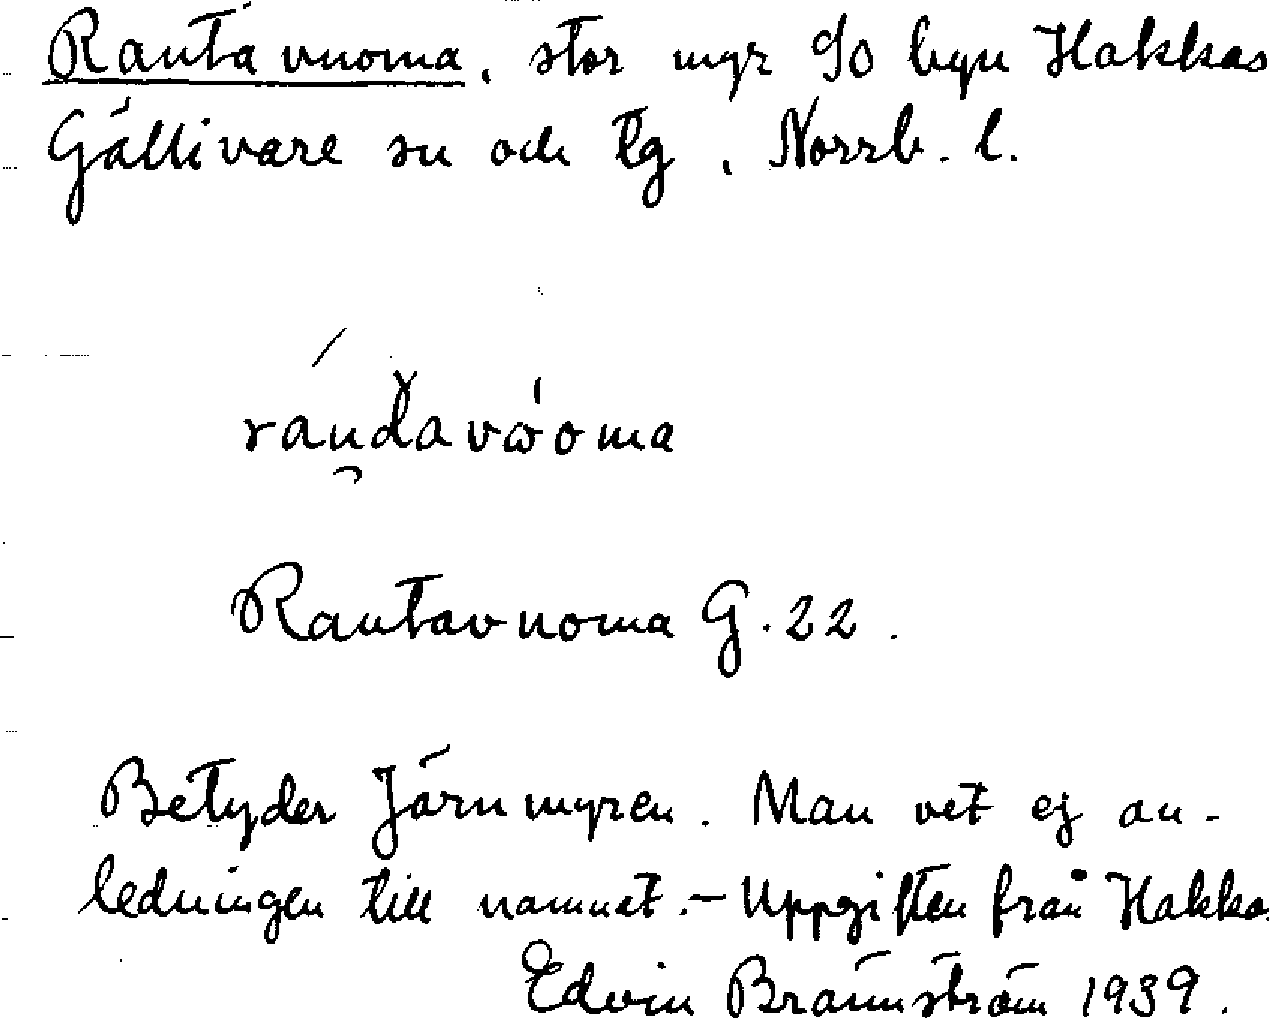 Rautavuoma, stor myr SO byn Hakkas
Gällivare sn och tg, Norrb. l.
ráu̯d̆avω'oma
Rautavuoma G. 22.
Betyder Järnmyren. Man vet ej an-
ledningen till namnet. – Uppgiften från Hakkas
Edvin Brännström 1939.